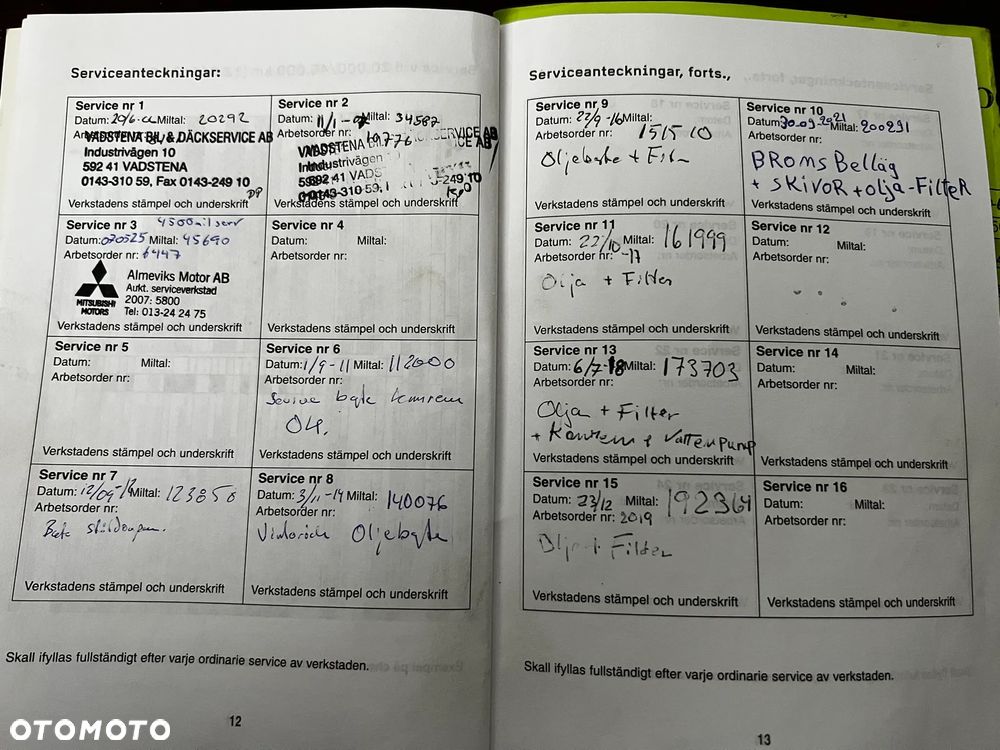 Serviceanteckningar:
Service nr 1
Datum: 29/6- Miltal: 20292
Arbetsorder nr:
VADSTENA BIL & DÄCKSERVICE AB
Industrivägen 10
592 41 VADSTENA
0143-310 59, Fax 0143-249 10
Verkstadens stämpel och underskrift
Service nr 2
Datum: 11/1- Miltal: 34587
Arbetsorder nr: 10776
VADSTENA BIL SERVICE AB
Industrivägen
592 41 VADS
0143-310 59, -249 10
Verkstadens stämpel och underskrift
Service nr 3 4500 mil serv
Datum: 070525 Miltal: 45690
Arbetsorder nr: 6447
MITSUBISHI MOTORS
Almeviks Motor AB
Aukt. serviceverkstad
2007: 5800
Tel: 013-24 24 75
Verkstadens stämpel och underskrift
Service nr 4
Datum: Miltal:
Arbetsorder nr:
Verkstadens stämpel och underskrift
Service nr 5
Datum: Miltal:
Arbetsorder nr:
Verkstadens stämpel och underskrift
Service nr 6
Datum: 1/9-11 Miltal: 112000
Arbetsorder nr:
Service byte kamrem
Verkstadens stämpel och underskrift
Service nr 7
Datum: 12/09- Miltal: 123850
Arbetsorder nr:
Byte
Verkstadens stämpel och underskrift
Service nr 8
Datum: 3/11-14 Miltal: 140076
Arbetsorder nr:
Oljebyte
Verkstadens stämpel och underskrift
Skall ifyllas fullständigt efter varje ordinarie service av verkstaden.
12
Serviceanteckningar, forts.,
Service nr 9
Datum: 22/9-16 Miltal:
Arbetsorder nr: 151510
Oljebyte + Filter
Service nr 10
Datum: 30.09.2021 Miltal: 200291
Arbetsorder nr:
BROMS Belläg
+ SKIVOR + olja-FilteR
Verkstadens stämpel och underskrift
Service nr 11
Datum: 22/10-17 Miltal: 161999
Arbetsorder nr:
Olja + Filter
Verkstadens stämpel och underskrift
Service nr 12
Datum: Miltal:
Arbetsorder nr:
Verkstadens stämpel och underskrift
Service nr 13
Datum: 6/7-18 Miltal: 173703
Arbetsorder nr:
Olja + Filter
+ Kamrem + Vattenpump
Verkstadens stämpel och underskrift
Service nr 14
Datum: Miltal:
Arbetsorder nr:
Verkstadens stämpel och underskrift
Service nr 15
Datum: 23/12 Miltal: 192364
Arbetsorder nr: 2019
Olja + Filter
Verkstadens stämpel och underskrift
Service nr 16
Datum: Miltal:
Arbetsorder nr:
Verkstadens stämpel och underskrift
Skall ifyllas fullständigt efter varje ordinarie service av verkstaden.
13
OTOMOTO